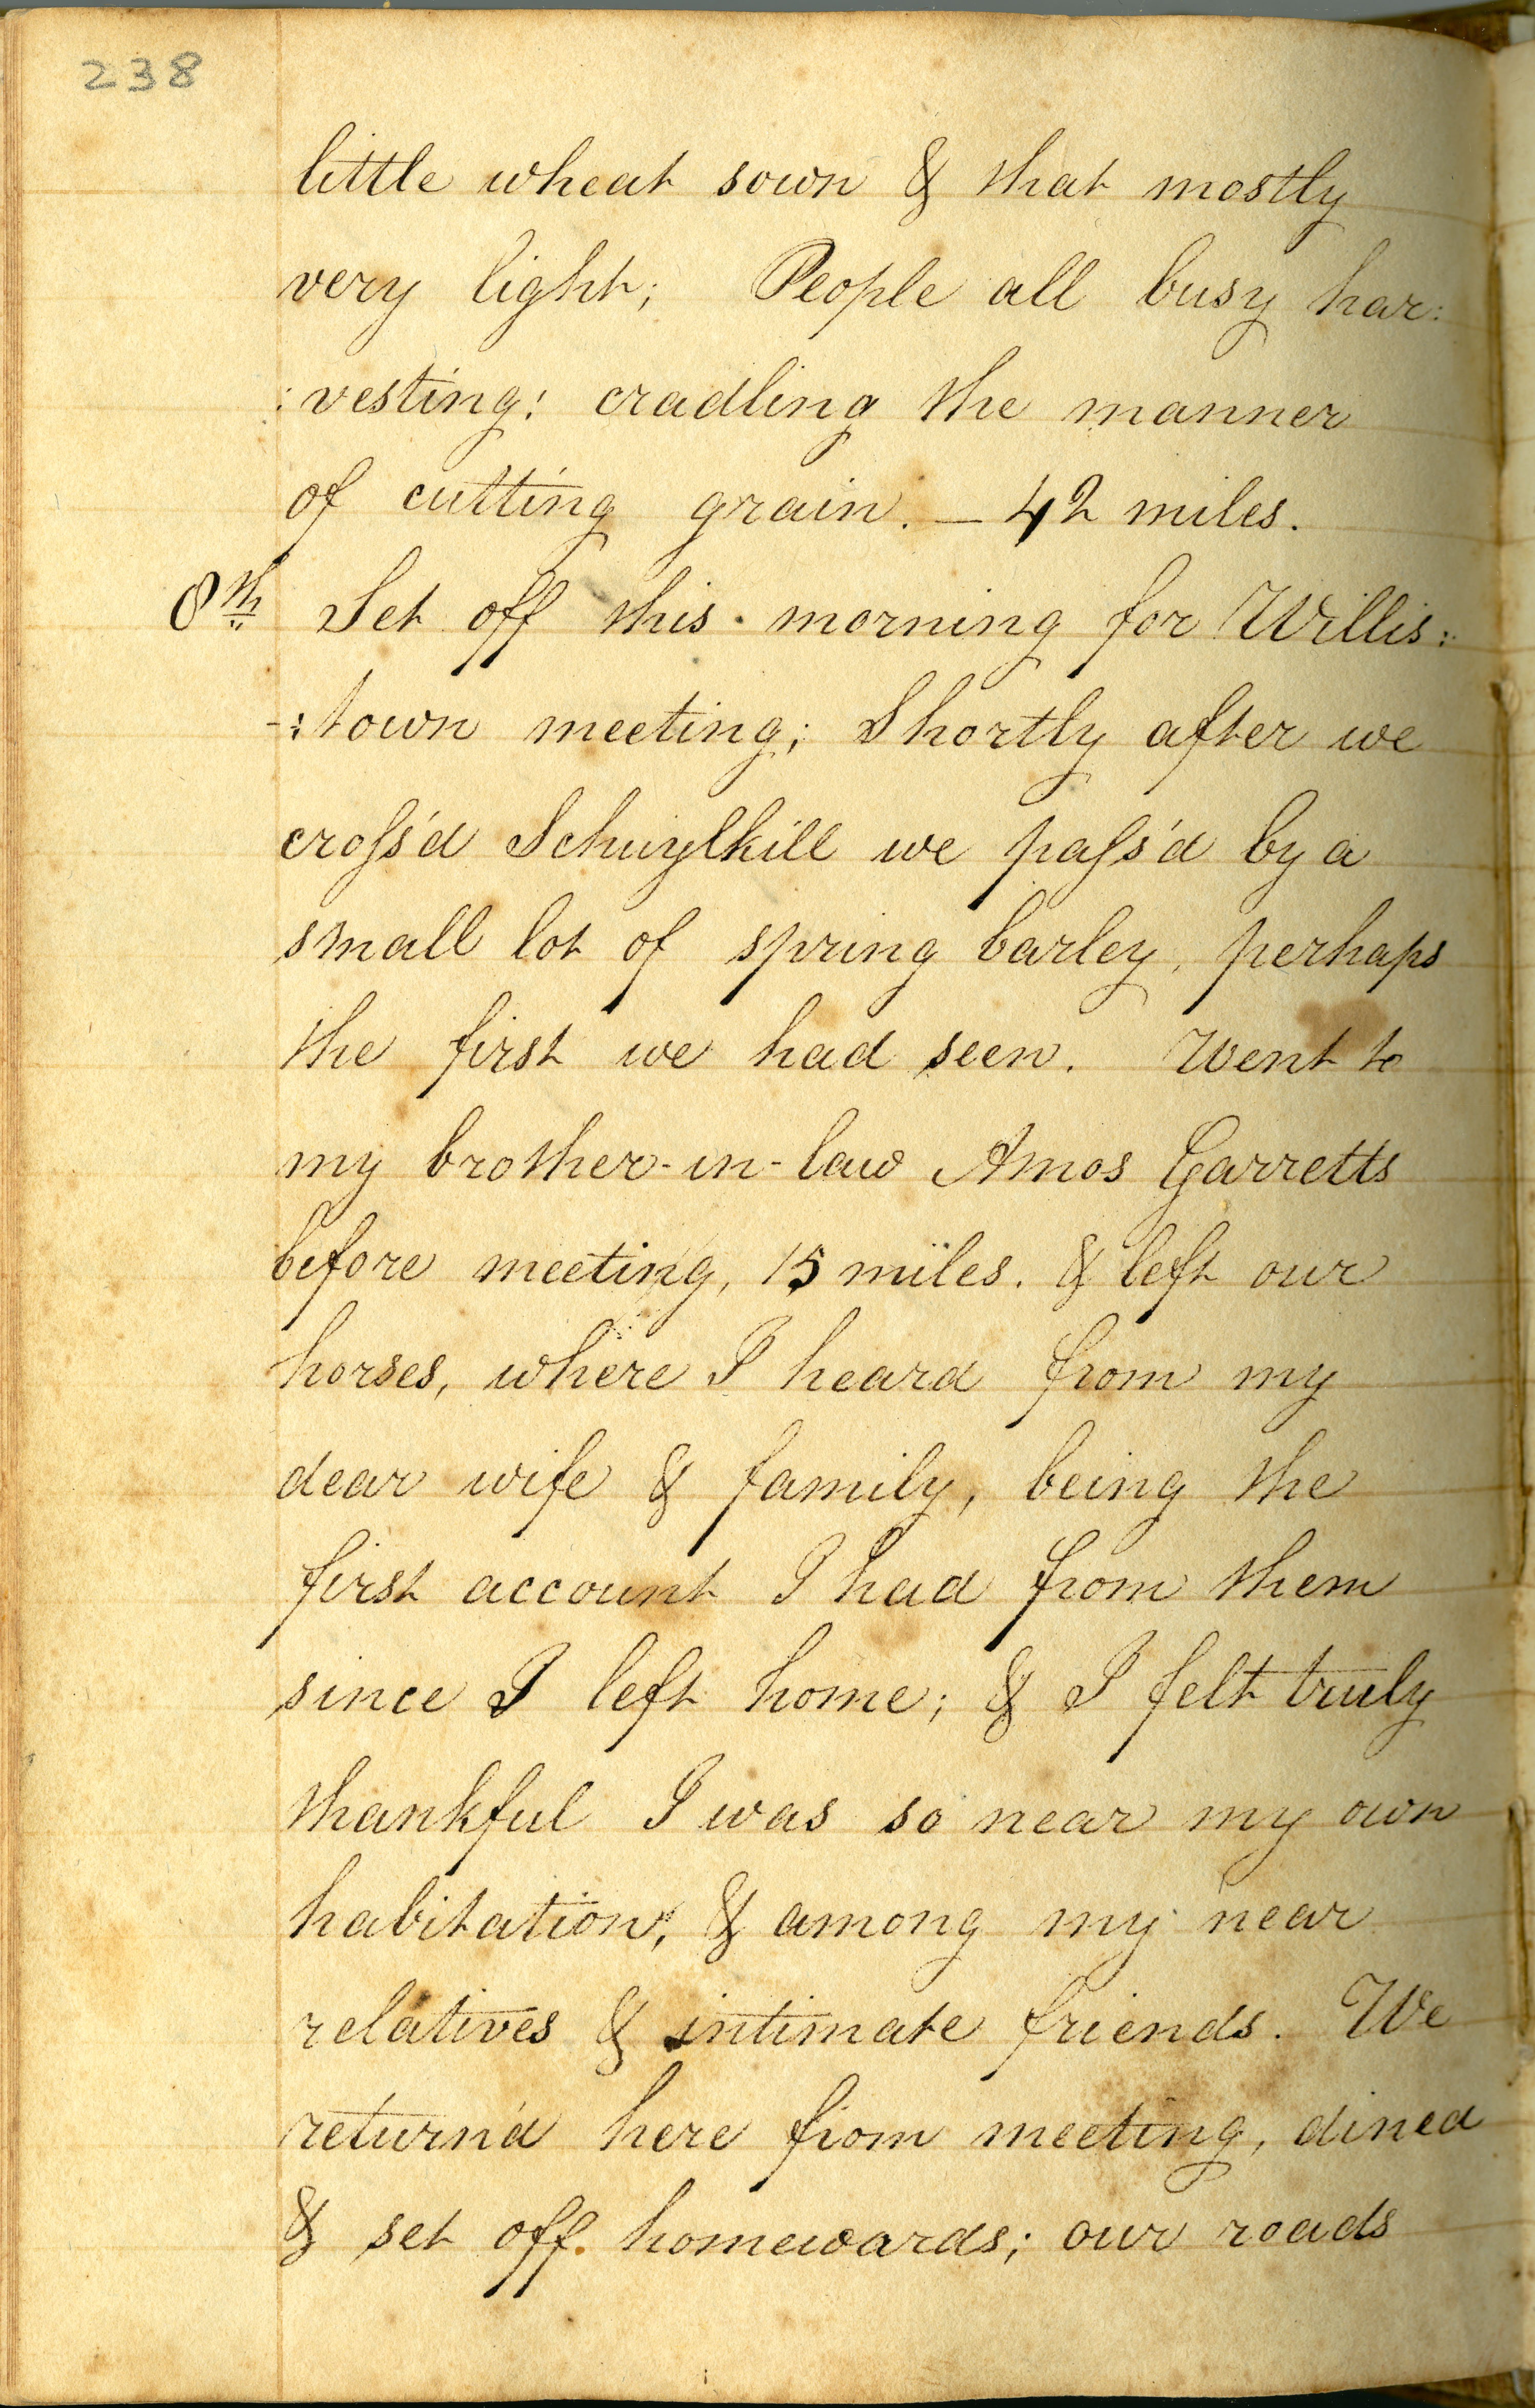 238
little wheat sown & that mostly
very light; People all busy har:
:vesting: cradling the manner
of cutting grain. – 42 miles.
8th Set off this morning for Willis:
-:town meeting; Shortly after we
cross'd Schuylkill we pass'd by a
small lot of spring barley, perhaps
the first we had seen. Went to
my brother-in-law Amos Garretts
before meeting, 15 miles. & left our
horses, where I heard from my
dear wife & family, being the
first account I had from them
since I left home; & I felt truly
thankful I was so near my own
habitation, & among my near
relatives & intimate friends. We
return'd here from meeting, dined
& set off homewards; our roads